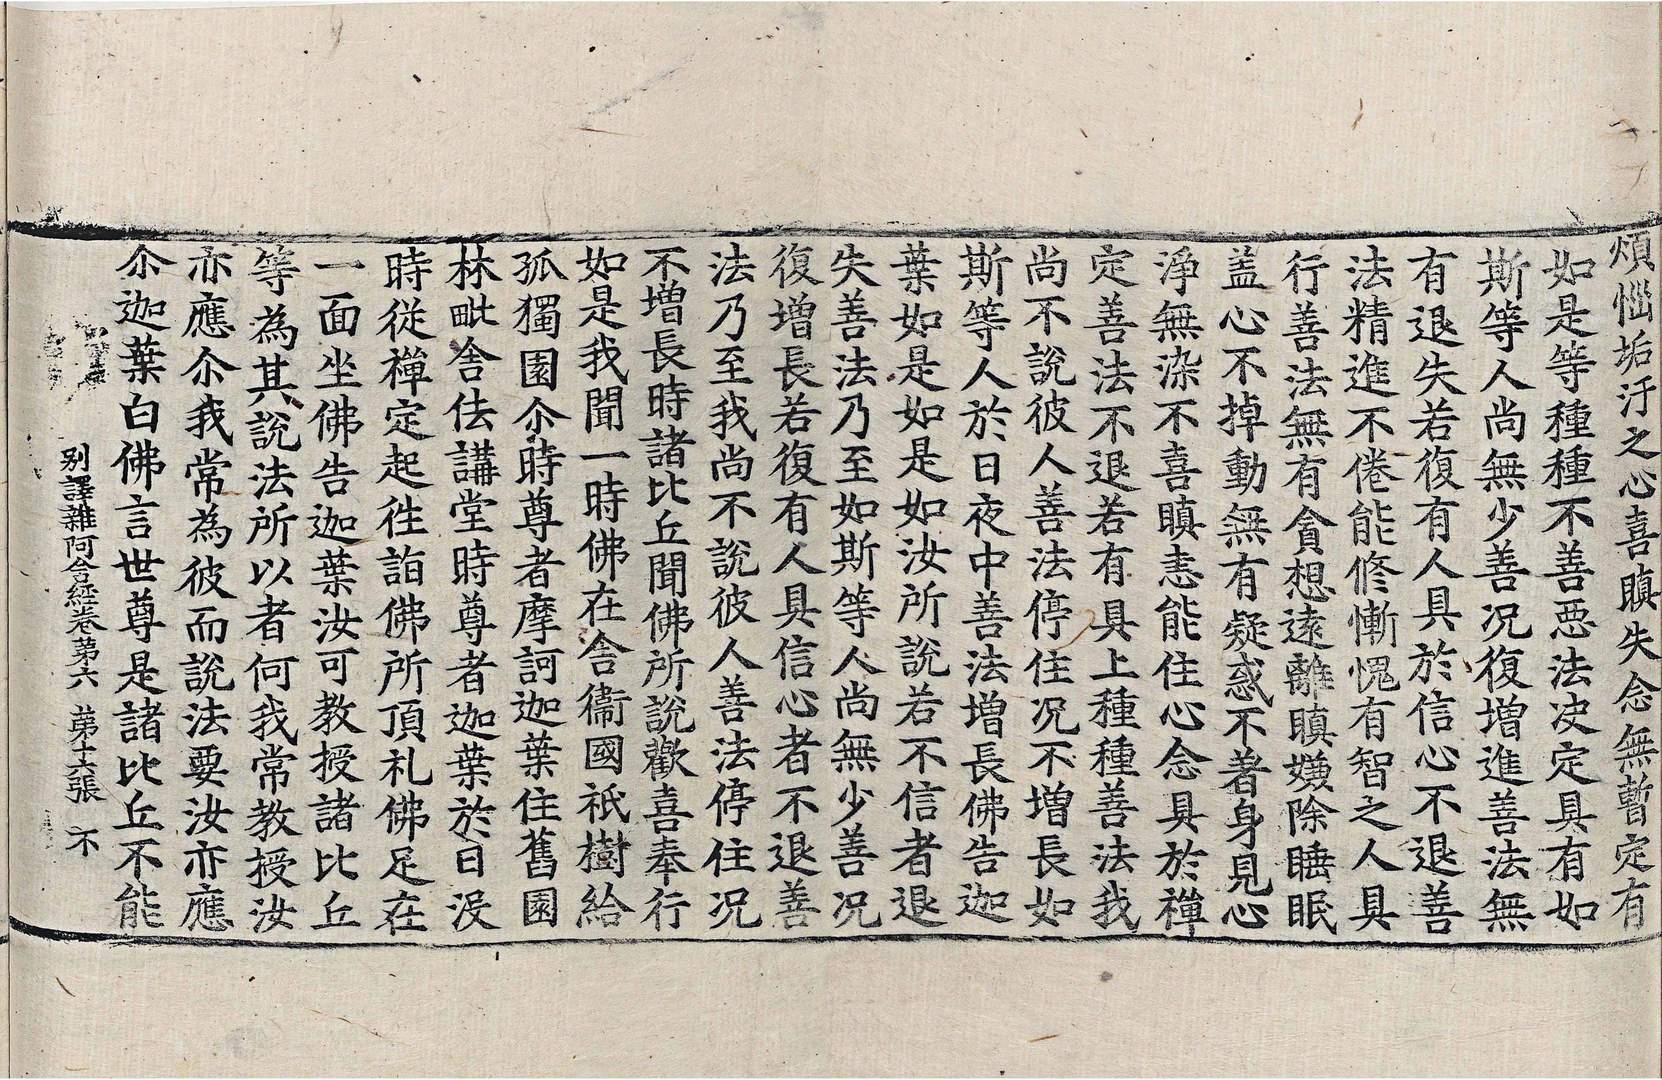 煩惱垢汙之心喜瞋失念無暫定有
如是等種種不善惡法决定具有如
斯等人尚無少善况復增進善法無
有退失若復有人具於信心不退善
法精進不倦能修慚愧有智之人具
行善法無有貪想遠離瞋嫌除睡眠
盖心不掉動無有疑惑不著身見心
淨無染不喜瞋恚能住心念具於禪
定善法不退若有具上種種善法我
尚不說彼人善法停住况不增長如
斯等人於日夜中善法增長佛告迦
葉如是如是如汝所說若不信者退
失善法乃至如斯等人尚無少善况
復增長若復有人具信心者不退善
法乃至我尚不說彼人善法停住况
不增長時諸比丘聞佛所說歡喜奉行
如是我聞一時佛在舍衛國祇樹給
孤獨園尒時尊者摩訶迦葉住舊園
林毗舍佉講堂時尊者迦葉於日没
時從禪定起徃詣佛所頂礼佛足在
一面坐佛告迦葉汝可教授諸比丘
等為其說法所以者何我常教授汝
亦應尒我常為彼而說法要汝亦應
尒迦葉白佛言世尊是諸比丘不能
别譯雜阿含經卷第六 第十六張 不